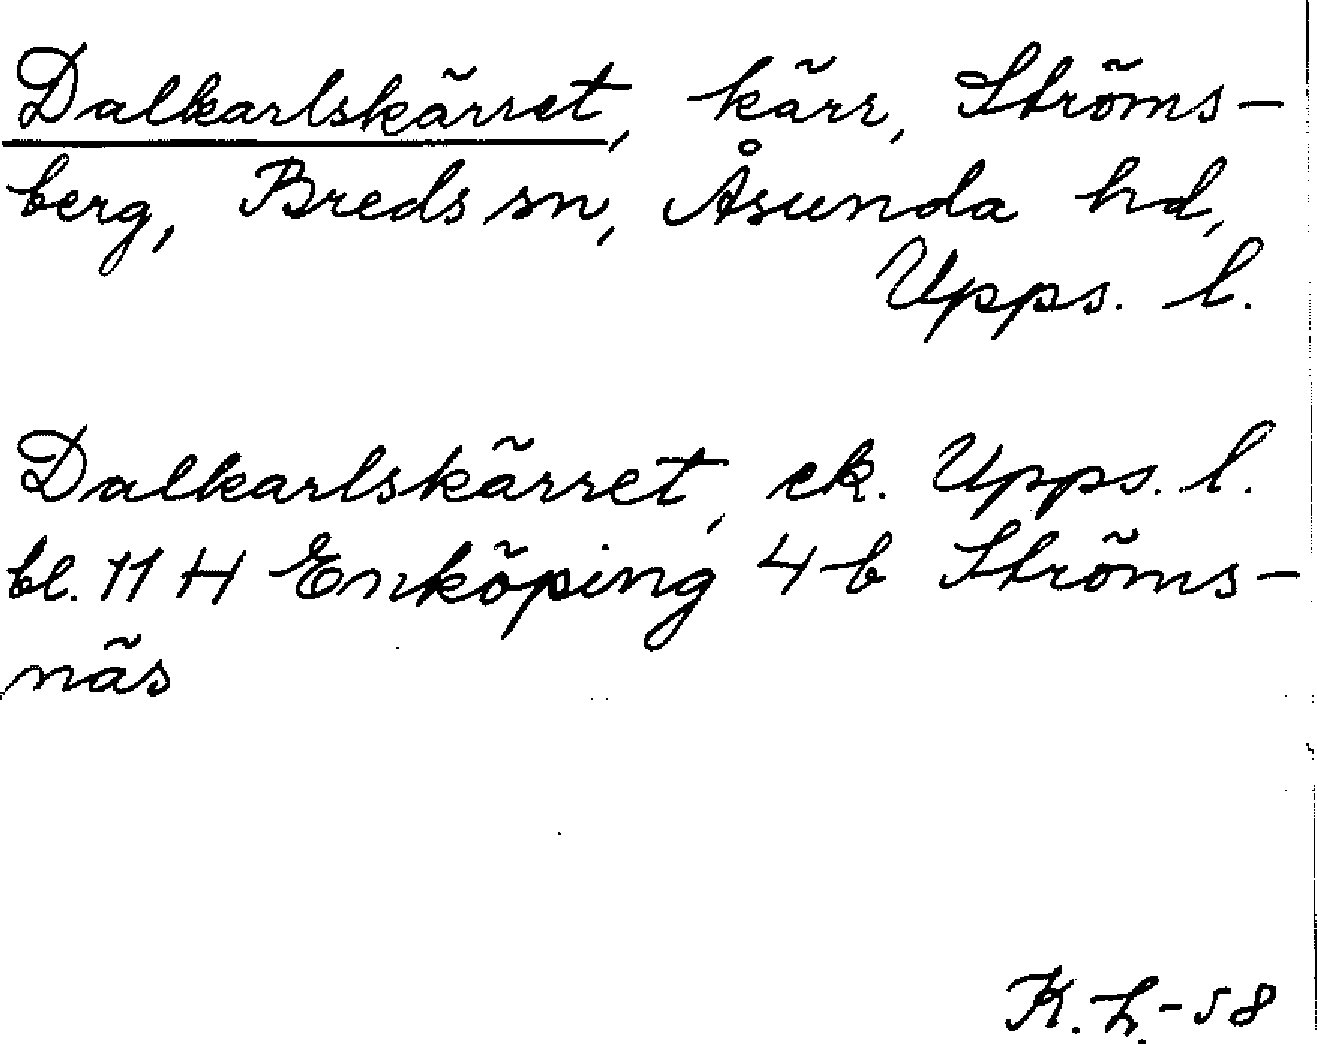 Dalkarlskärret, kärr, Ströms-
berg, Breds sn, Åsunda hd,
Upps. l.
Dalkarlskärret, ek. Upps. l.
bl. 11 H Enköping 4 b Ströms-
näs
K. H. -58